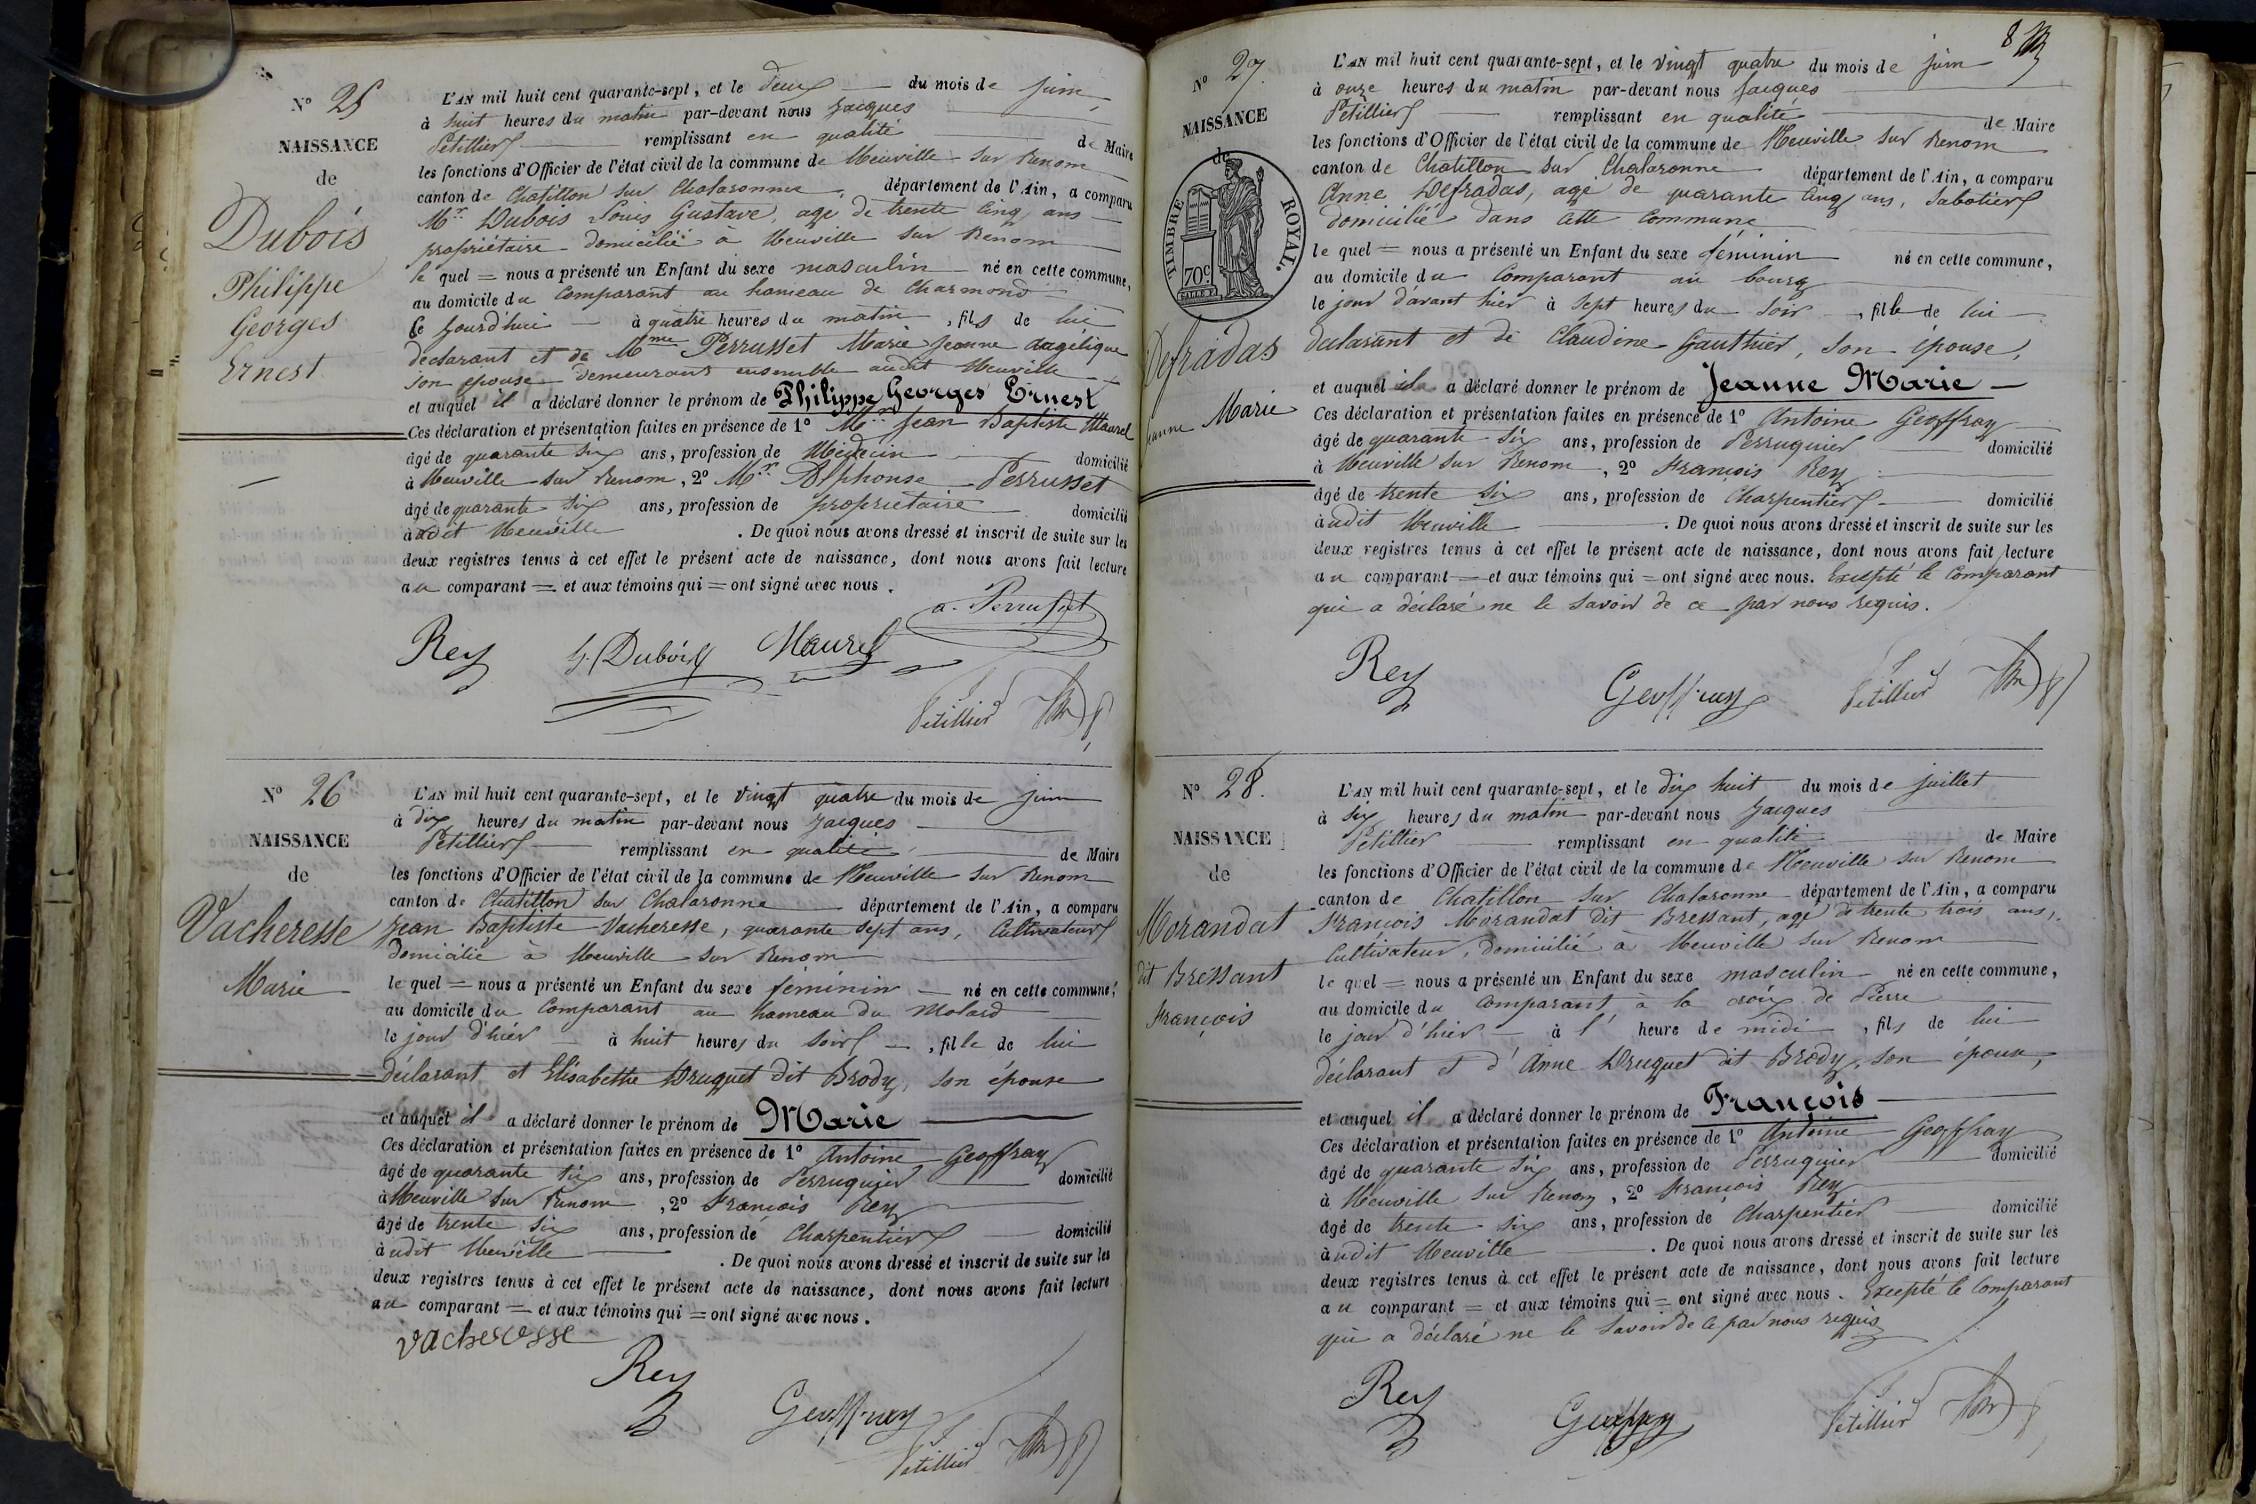 N° 25
NAISSANCE
de
Dubois
Philippe
Georges
Ernest
L'AN mil huit cent quarante-sept, et le deux du mois de juin
à huit heures du matin par-devant nous Jacques
Pétillier remplissant en qualité de Maire
les fonctions d'Officier de l'état civil de la commune de Neuville sur Renom
canton de Chatillon sur Chalaronne département de l'Ain, a comparu
Mr Dubois Louis Gustave, agé de trente cinq ans
propriétaire domicilié à Neuville sur Renom
le quel = nous a présenté un Enfant du sexe masculin né en cette commune,
au domicile du comparant au hameau de Charmond
ce jourd'hui à quatre heures du matin, fils de lui
déclarant et de Mme Perrusset Marie Jeanne Angélique
son épouse demeurant ensemble audit Neuville
et auquel il a déclaré donner le prénom de Philippe Georges Ernest
Ces déclaration et présentation faites en présence de 1° Mr Jean Baptiste Maurel
âgé de quarante six ans, profession de Médecin domicilié
à Neuville sur Renom, 2° Mr Alphonse Perrusset
âgé de quarante six ans, profession de propriétaire domicilié
audit Neuville. De quoi nous avons dressé et inscrit de suite sur les
deux registres tenus à cet effet le présent acte de naissance, dont nous avons fait lecture
au comparant = et aux témoins qui = ont signé avec nous.
a. Perrusset
Rey G. Dubois Maurel
Pétillier
N° 26
NAISSANCE
de
Vacheresse
Marie
L'AN mil huit cent quarante-sept, et le vingt quatre du mois de juin
à dix heures du matin par-devant nous Jacques
Pétillier remplissant en qualité de Maire
les fonctions d'Officier de l'état civil de la commune de Neuville sur Renom
canton de Chatillon sur Chalaronne département de l'Ain, a comparu
Jean Baptiste Vacheresse, quarante sept ans, Cultivateur
domicilié à Neuville sur Renom
le quel = nous a présenté un Enfant du sexe féminin né en cette commune,
au domicile du comparant au hameau du Molard
le jour d'hier à huit heures du soir, fille de lui
déclarant et Elisabethe Druguet dit Brody, son épouse
et auquel il a déclaré donner le prénom de Marie
Ces déclaration et présentation faites en présence de 1° Antoine Geoffray
âgé de quarante six ans, profession de Perruquier domicilié
à Neuville sur Renom, 2° François Rey
âgé de trente six ans, profession de Charpentier domicilié
audit Neuville. De quoi nous avons dressé et inscrit de suite sur les
deux registres tenus à cet effet le présent acte de naissance, dont nous avons fait lecture
au comparant = et aux témoins qui = ont signé avec nous.
vacheresse
Rey
Geoffray
Pétillier
8
N° 27.
NAISSANCE
de
TIMBRE ROYAL.
70c
Defradas
Jeanne Marie
L'AN mil huit cent quarante-sept, et le vingt quatre du mois de juin
à onze heures du matin par-devant nous Jacques
Pétillier remplissant en qualité de Maire
les fonctions d'Officier de l'état civil de la commune de Neuville sur Renom
canton de Chatillon sur Chalaronne département de l'Ain, a comparu
Anne Defradas, agé de quarante cinq ans, Sabotier
domicilié dans cette commune
le quel = nous a présenté un Enfant du sexe féminin né en cette commune,
au domicile du comparant au bourg
le jour d'avant hier à sept heures du soir, fille de lui
déclarant et de Claudine Gauthier, son épouse,
et auquel il a déclaré donner le prénom de Jeanne Marie
Ces déclaration et présentation faites en présence de 1° Antoine Geoffray
âgé de quarante six ans, profession de Perruquier domicilié
à Neuville sur Renom, 2° François Rey
âgé de trente six ans, profession de Charpentier domicilié
audit Neuville. De quoi nous avons dressé et inscrit de suite sur les
deux registres tenus à cet effet le présent acte de naissance, dont nous avons fait lecture
au comparant = et aux témoins qui = ont signé avec nous. Excepté le comparant
qui a déclaré ne le savoir de ce par nous requis.
Rey Geoffray Pétillier
N° 28.
NAISSANCE
de
Morandat
dit Bressant
François
L'AN mil huit cent quarante-sept, et le dix huit du mois de juillet
à six heures du matin par-devant nous Jacques
Pétillier remplissant en qualité de Maire
les fonctions d'Officier de l'état civil de la commune de Neuville sur Renom
canton de Chatillon sur Chalaronne département de l'Ain, a comparu
François Morandat dit Bressant, agé de trente trois ans,
Cultivateur, domicilié à Neuville sur Renom
le quel = nous a présenté un Enfant du sexe masculin né en cette commune,
au domicile du comparant à la croix de Pierre
le jour d'hier à l' heure de midi, fils de lui
déclarant et d'Anne Druguet dit Brody, son épouse,
et auquel il a déclaré donner le prénom de François
Ces déclaration et présentation faites en présence de 1° Antoine Geoffray
âgé de quarante six ans, profession de Perruquier domicilié
à Neuville sur Renom, 2° François Rey
âgé de trente six ans, profession de Charpentier domicilié
audit Neuville. De quoi nous avons dressé et inscrit de suite sur les
deux registres tenus à cet effet le présent acte de naissance, dont nous avons fait lecture
au comparant = et aux témoins qui = ont signé avec nous. Excepté le comparant
qui a déclaré ne le savoir de ce par nous requis
Rey Geoffray Pétillier